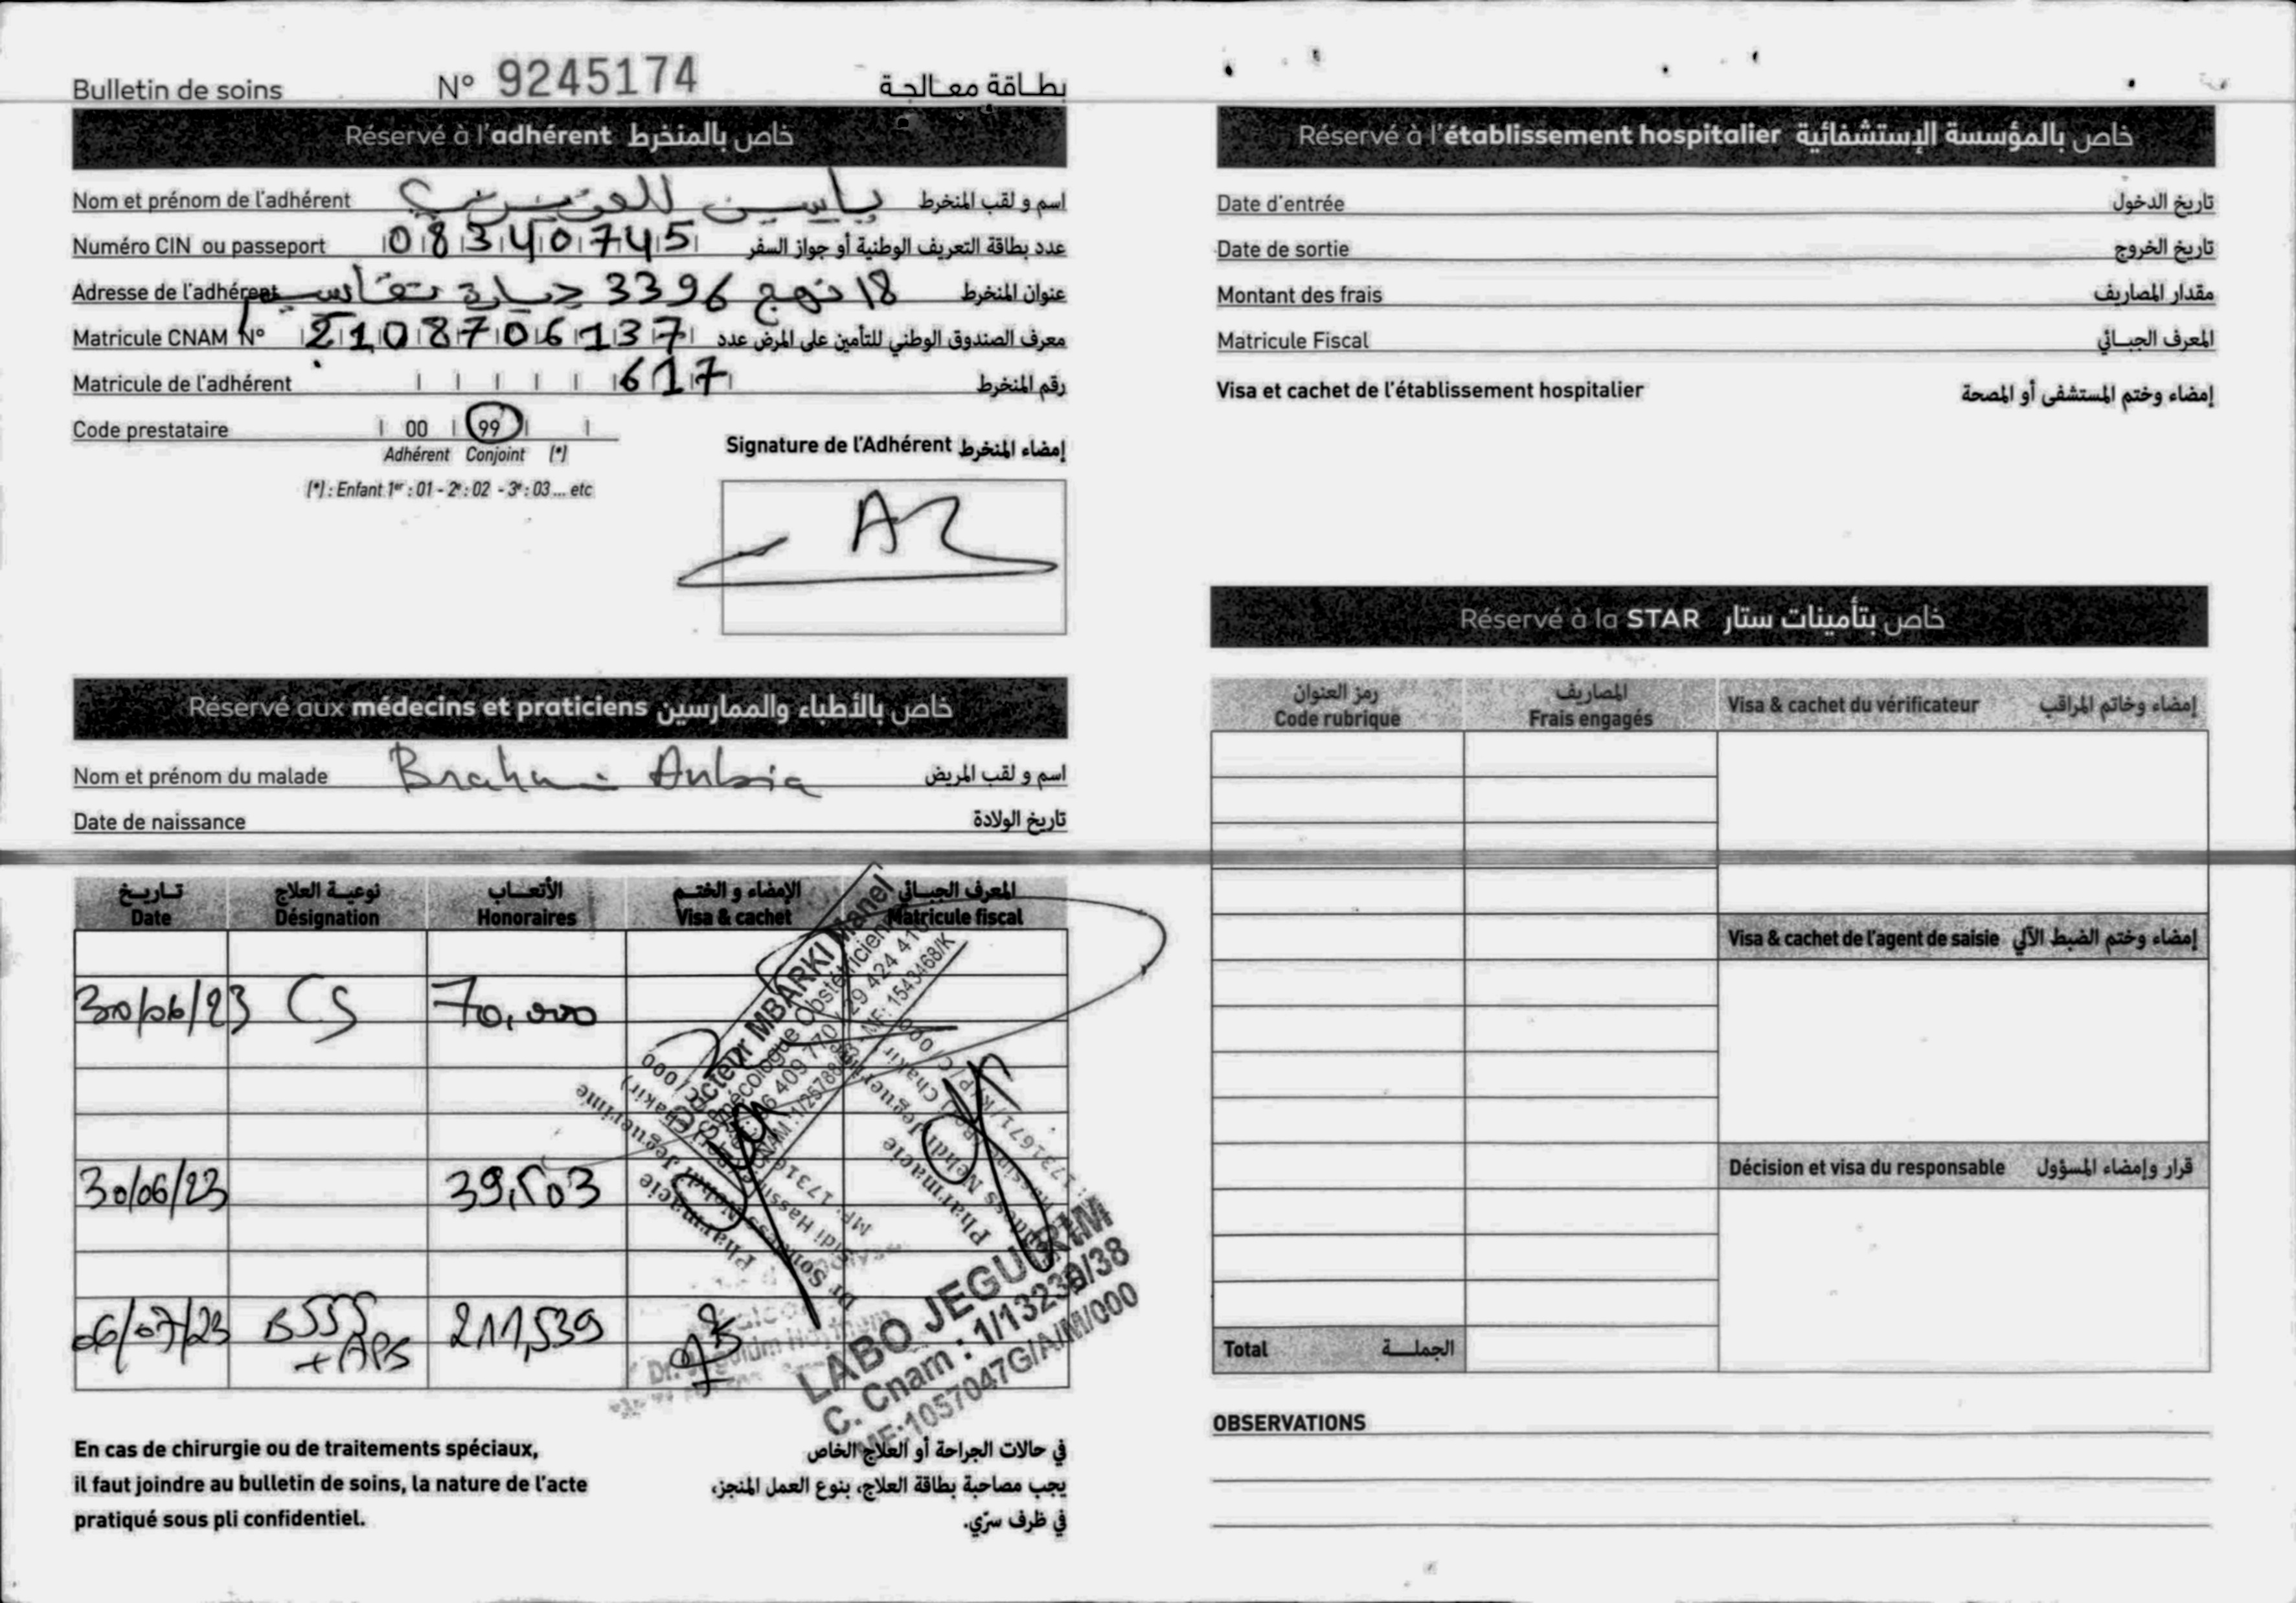 Bulletin de soins N° 9245174 بطاقة معالجة
Réservé à l'adhérent خاص بالمنخرط
Nom et prénom de l'adhérent ياسين اسم و لقب المنخرط
Numéro CIN ou passeport 08340745 عدد بطاقة التعريف الوطنية أو جواز السفر
Adresse de l'adhérent 18 نهج 3396 عنوان المنخرط
Matricule CNAM N° 210870613 7 معرف الصندوق الوطني للتأمين على المرض عدد
Matricule de l'adhérent 617 رقم المنخرط
Code prestataire 00 99
Adhérent Conjoint (*)
(*) : Enfant 1er : 01 - 2e : 02 - 3e : 03 ... etc
Signature de l'Adhérent إمضاء المنخرط
Réservé aux médecins et praticiens خاص بالأطباء والممارسين
Nom et prénom du malade Brahmi اسم و لقب المريض
Date de naissance تاريخ الولادة
تاريخ نوعية العلاج الأتعاب الإمضاء و الختم المعرف الجبائي
Date Désignation Honoraires Visa & cachet Matricule fiscal
30/06/23 CS 70,000
Docteur MBARKI Manel
30/06/23 39,503
Pharmacie
Pharmacie
06/07/23 B555 + APB 211,539
LABO JEGUIRIM
C. Cnam : 1/13238/38
MF:1057047G/A/M/000
En cas de chirurgie ou de traitements spéciaux,
il faut joindre au bulletin de soins, la nature de l'acte
pratiqué sous pli confidentiel.
في حالات الجراحة أو العلاج الخاص
يجب مصاحبة بطاقة العلاج، بنوع العمل المنجز،
في ظرف سرّي.
Réservé à l'établissement hospitalier خاص بالمؤسسة الإستشفائية
Date d'entrée تاريخ الدخول
Date de sortie تاريخ الخروج
Montant des frais مقدار المصاريف
Matricule Fiscal المعرف الجبائي
Visa et cachet de l'établissement hospitalier إمضاء وختم المستشفى أو المصحة
Réservé à la STAR خاص بتأمينات ستار
رمز العنوان المصاريف
Code rubrique Frais engagés Visa & cachet du vérificateur إمضاء وخاتم المراقب
Visa & cachet de l'agent de saisie إمضاء وختم الضبط الآلي
Décision et visa du responsable قرار وإمضاء المسؤول
Total الجملة
OBSERVATIONS